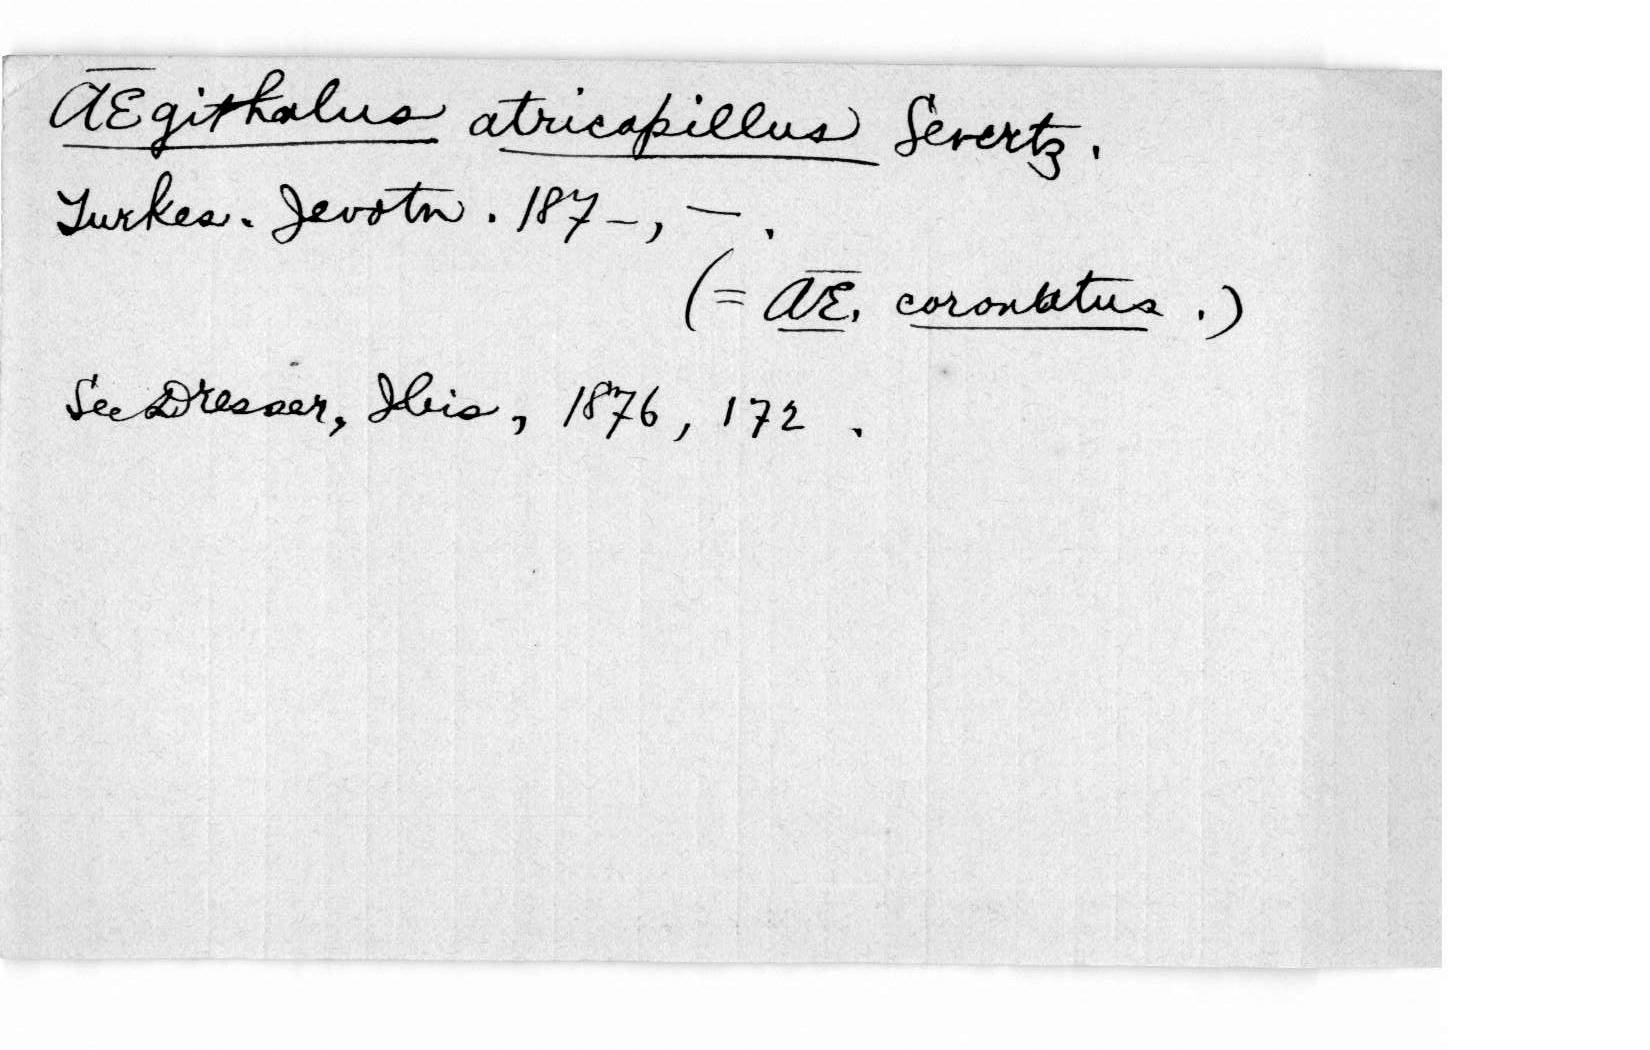 Ægithalus atricapillus Severtz.
Turkes. Jevotn. 187–, –.
(= Æ. coronatus.)
See Dresser, Ibis, 1876, 172.